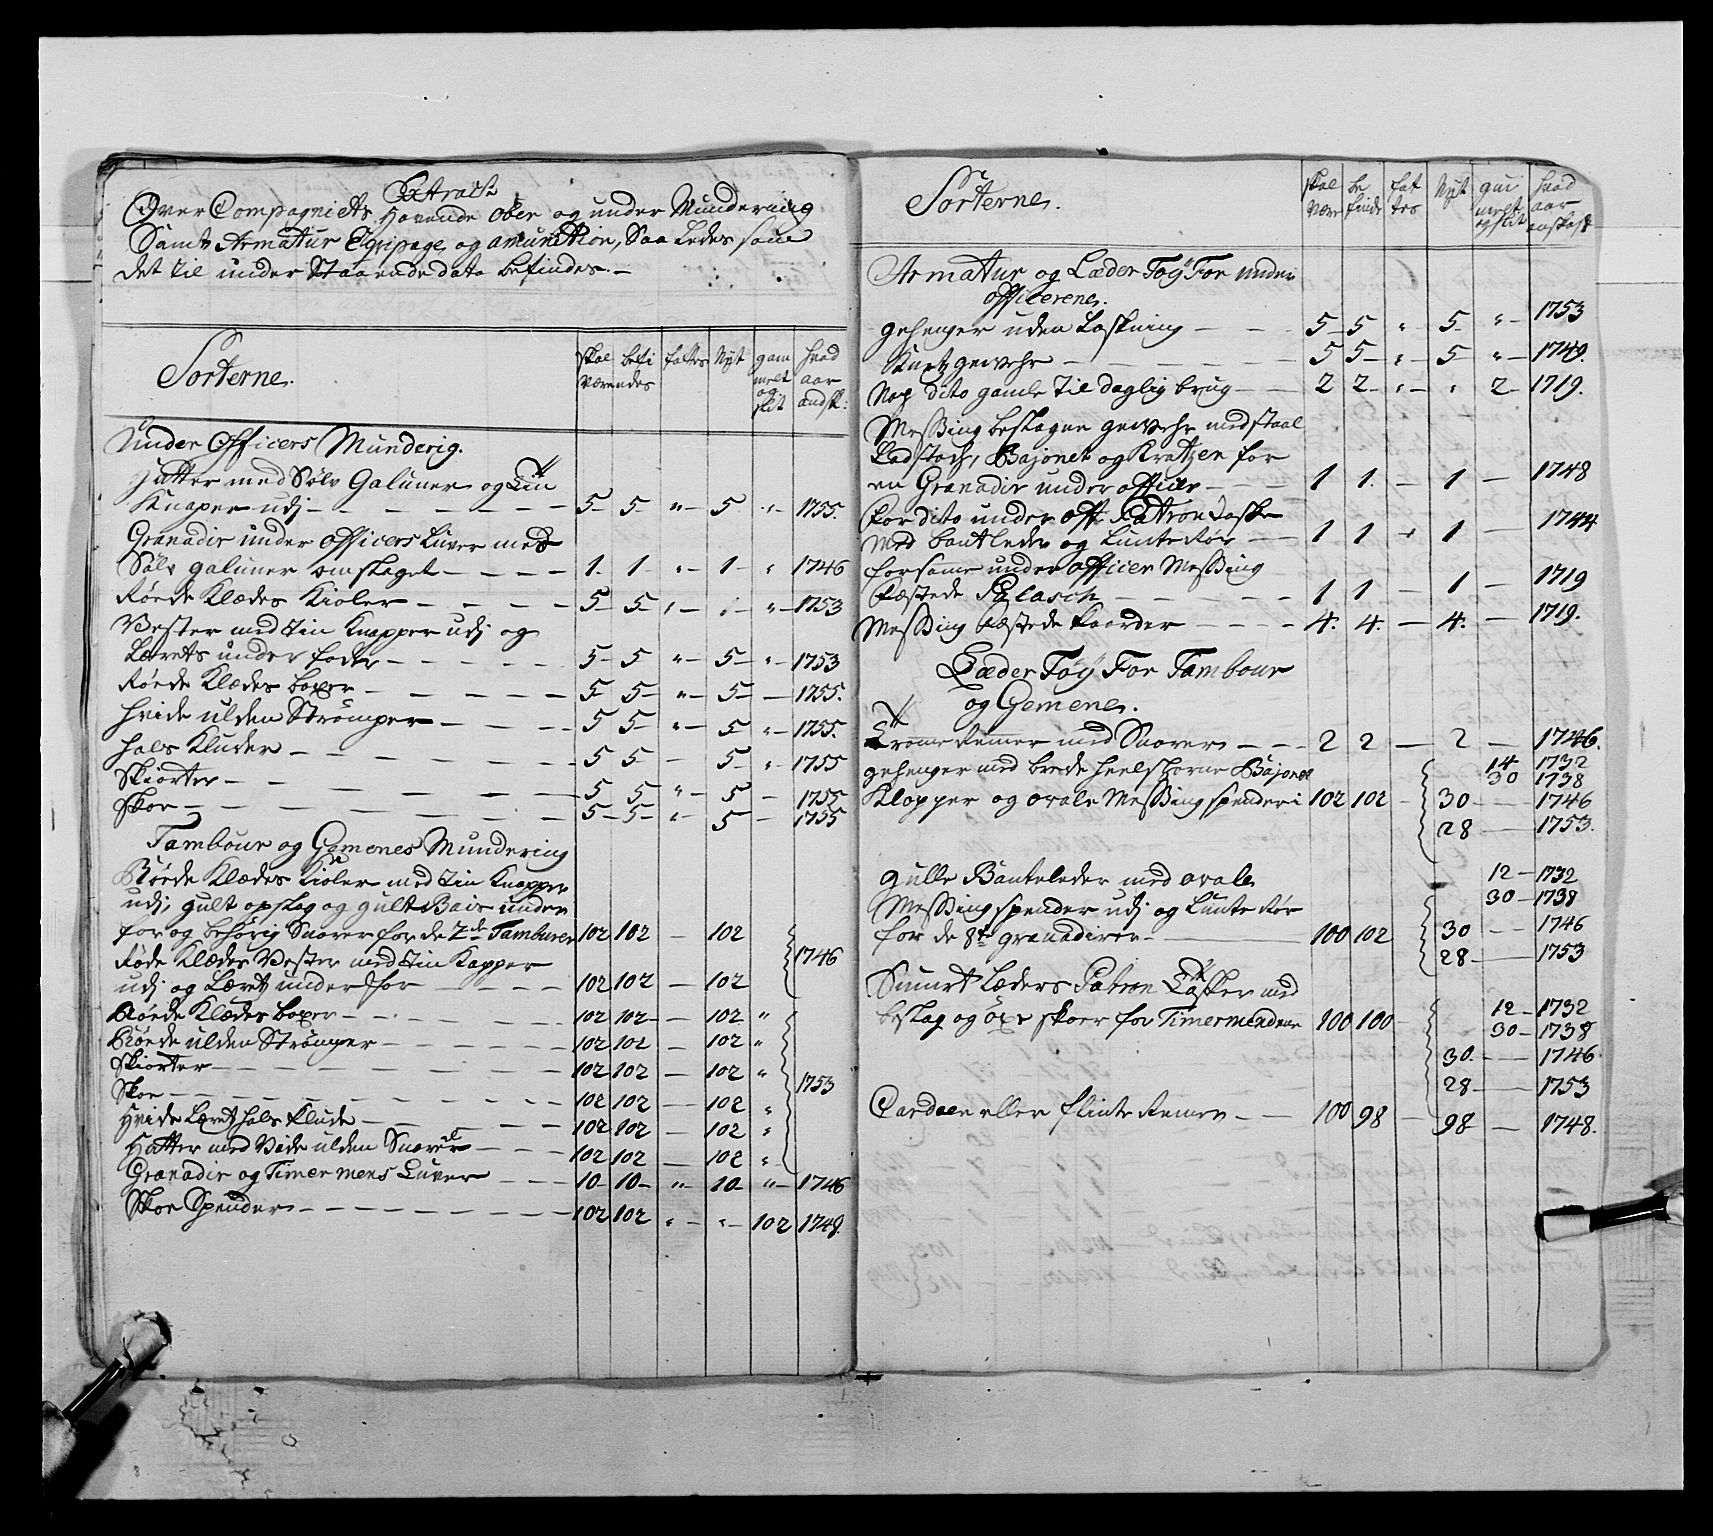 Extract
Over Compagniets Havende Ober og under Mundering
Samt Armatur Equipage og amunition, Saa Ledes som
det til under Staaende dato befindes. —
Sorterne.
skal værre
befindes
fattes
Nyt
gammelt og slit
hvad aar andsk:
Under Officers Munderig.
Hatter med Sølv Galuner og Tin
Knaper udj — 5 5 " 5 " 1755.
Granadir under officers Luver med
Sølv galuner omslaget — 1. 1 " 1 " 1746
Røede Klædes Kioler — 5 5 " " 1753
Vester med tin Knapper udj og
Lærets under foder — 5 5 " 5 " 1753
Røede Klædes boxer — 5 5 " 5 — 1755.
hvide ulden Strømper — 5 5 " 5 " 1755.
hals Kluder — 5 5 — 5 " 1755
Skiorter — 5 5 " 5 — 1755
Skoe — 5 5 " 5 — 1755
Tambour og Gemenes Mundering
Røede Klædes Kioler med tin Knapper
udj, gult opslag og gult Bais under
for og behørig Snorer for de 2de Tamburer 102 102 — 102
Røde Klædes Vester med tin Kapper 1746
udj og Læret under for — 102 102 — 102
Røede Klædes boxer — 102 102 — 102 "
Røede ulden Strømper — 102 102 — 102 "
Skiorter — 102 102 — 102 "
Skoe — 102 102 — 102 " 1753
Hvide Læret hals Klude — 102 102 — 102 "
Hatter med Vide ulden Snorer — 102 102 — 102 "
Granadir og Timer mens Luver — 10 10 " 10 " 1746
Skoe Spender — 102 102 " " 102 1748.
Sorterne.
skal være
befinde
fattes
Nyt
gammelt og slit
hvad aar anskaft
Armatur og Læder Tøy For under
officerene.
gehenger uden Laskning — 5 5 " 5 " 1753
Kurtz gewehr — 5 5 " 5 " 1749.
Nog dito gamle til daglig brug — 2 2 " " 2 1719.
Messing beslagen gewehr med staal
Ladstock, Bajonet og Kratzen for
en Granadir under officer — 1 1. — 1 — 1748
for dito under off: Patron Taske
med bantleder og Lunte Rør — 1 1 — 1 — 1744
for samme under officer Messing
fæstede Palasch — 1 1 — 1 — 1719
Messing fæstede Kaarder — 4. 4. — 4. — 1719.
Læder Tøy For Tambour
og Gemene.
Tromme Remmer med Snorer — 2 2 — 2 — 1746.
gehenger med brede heelskorne Bajonet 14 1732
30 1738
Klopper og ovale Messing spender i 102 102 — 30 — 1746
28 — 1753.
gulle Banteleder med ovale 12 — 1732
Messing spender udj og Lunte Rør 30 — 1738
for de 8te granadirer — 100 102 30 — 1746
28 — 1753
Smurt Læders Patron Tasker med
beslag og øxe skoer for Timermendene 100 100 — 12 — 1732
30 — 1738
30. — 1746
28 — 1753
Cardaer eller flinte Remer — 100 98 — 98 — 1748.